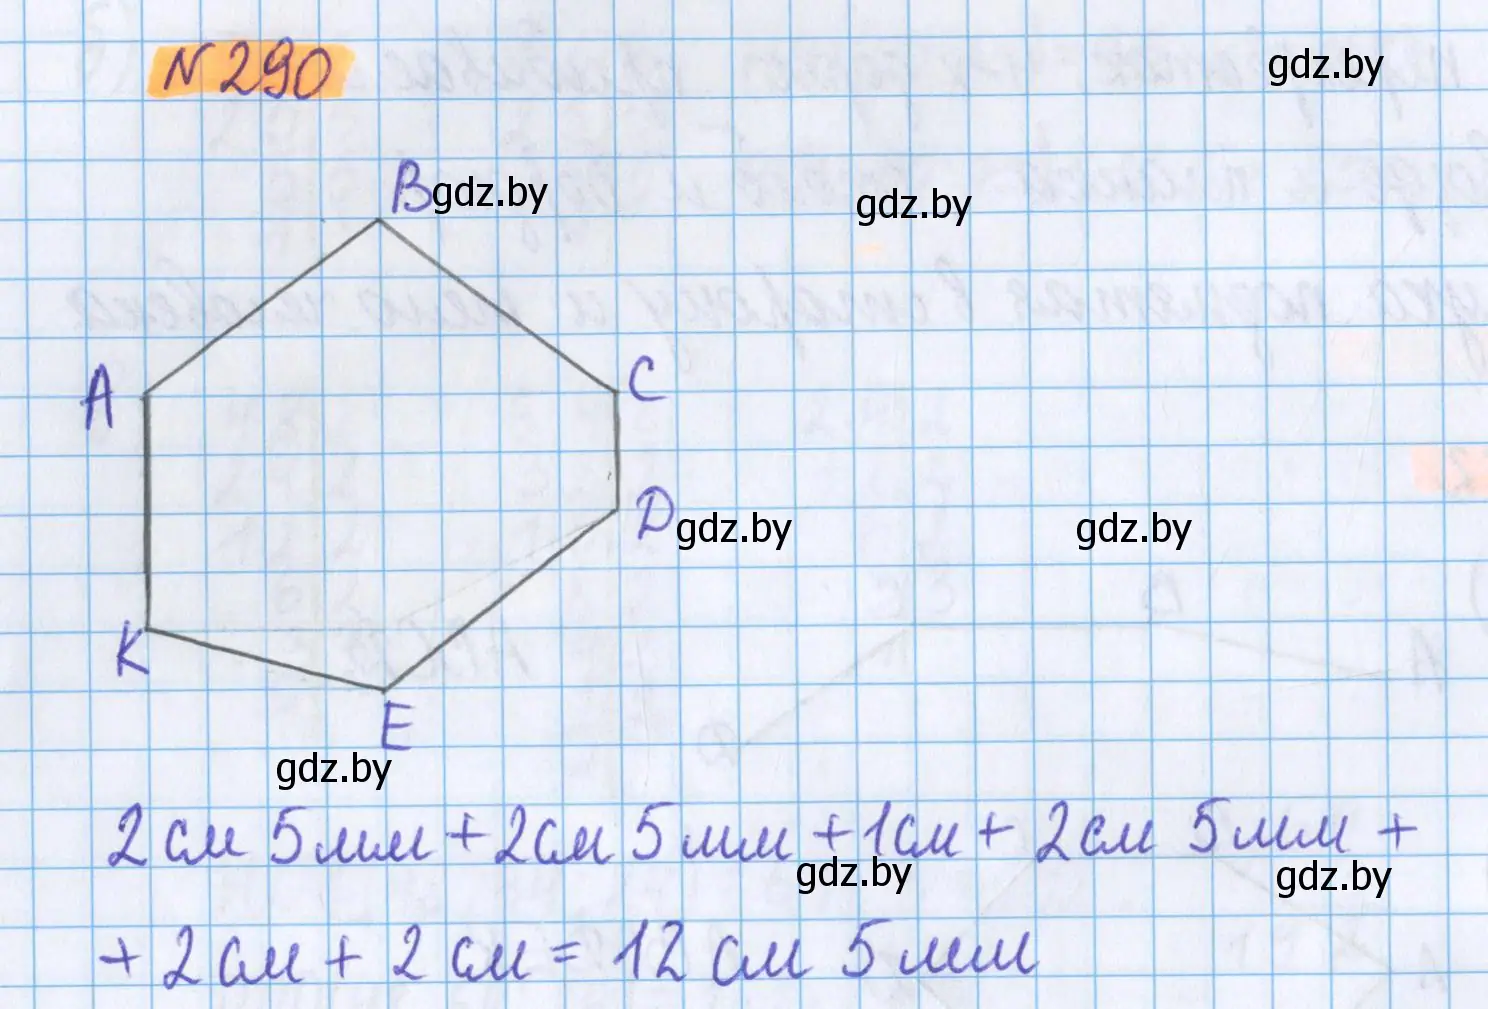 N 290
gdz.by
B
gdz.by
gdz.by
A
C
D
gdz.by
gdz.by
K
E
gdz.by
2 см 5 мм + 2 см 5 мм + 1 см + 2 см 5 мм +
gdz.by
gdz.by
+ 2 см + 2 см = 12 см 5 мм